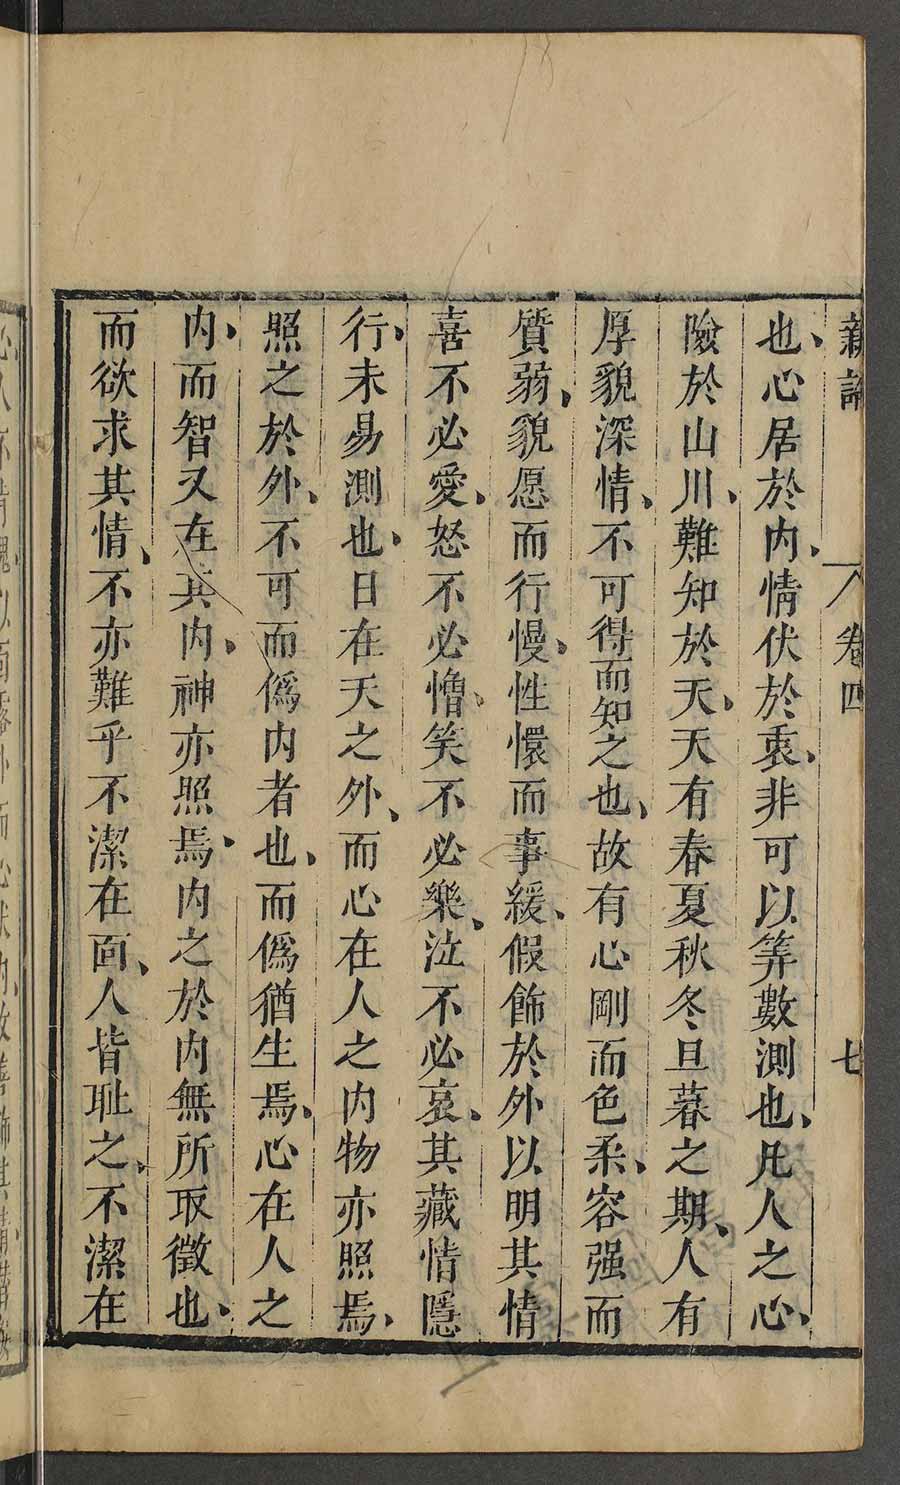 新論 卷四 七
也、心居於内、情伏於衷、非可以筭數測也、凡人之心、
險於山川、難知於天、天有春夏秋冬旦暮之期、人有
厚貌深情、不可得而知之也、故有心剛而色柔、容强而
質弱、貌愿而行慢、性懁而事緩、假飾於外以明其情
喜不必愛、怒不必憎、笑不必樂、泣不必哀、其藏情隱
行、未易測也、日在天之外、而心在人之内物亦照焉、
照之於外、不可而僞内者也、而僞猶生焉、心在人之
内、而智又在其内、神亦照焉、内之於内無所取徵也、
而欲求其情、不亦難乎不潔在面、人皆耻之、不潔在